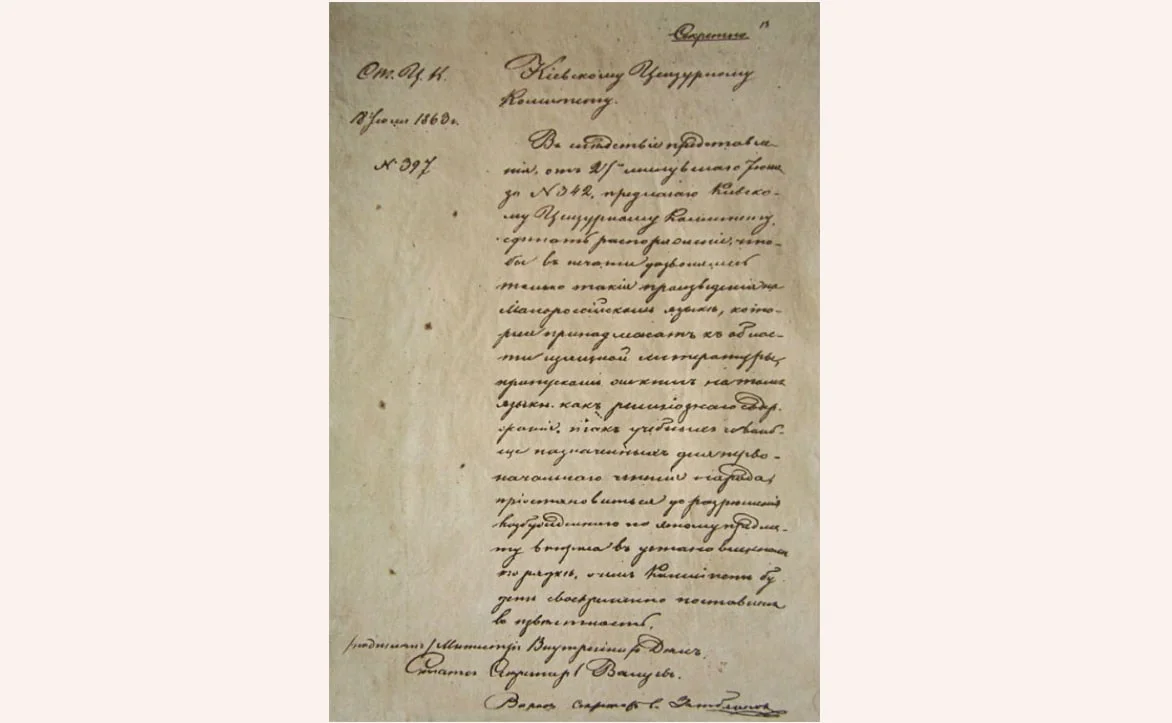 Секретно.
От. Ц. К.
18 Іюля 1863 г.
№ 397
Кіевскому Цензурному
Комитету.
Въ слѣдствіе представле-
нія, отъ 27 минувшаго Іюня
за № 342, предлагаю Кіевско-
му Цензурному Комитету,
сдѣлать распоряженіе, что-
бы въ печати дозволялись
только такія произведенія на
Малороссійскомъ языкѣ, кото-
рыя принадлежатъ къ облас-
ти изящной литературы,
пропускомъ же книгъ на томъ
языкѣ, какъ религіознаго содер-
жанія, такъ учебныхъ и вооб-
ще назначенныхъ для перво-
начальнаго чтенія народа,
пріостановиться до разрѣшенія
возбужденнаго по этому предме-
ту вопроса въ установленномъ
порядкѣ, о чемъ Комитетъ бу-
детъ своевременно поставленъ
въ извѣстность.
/подписалъ/ Министръ Внутреннихъ Дѣлъ,
Статсъ Секретарь Валуевъ.
Секретарь